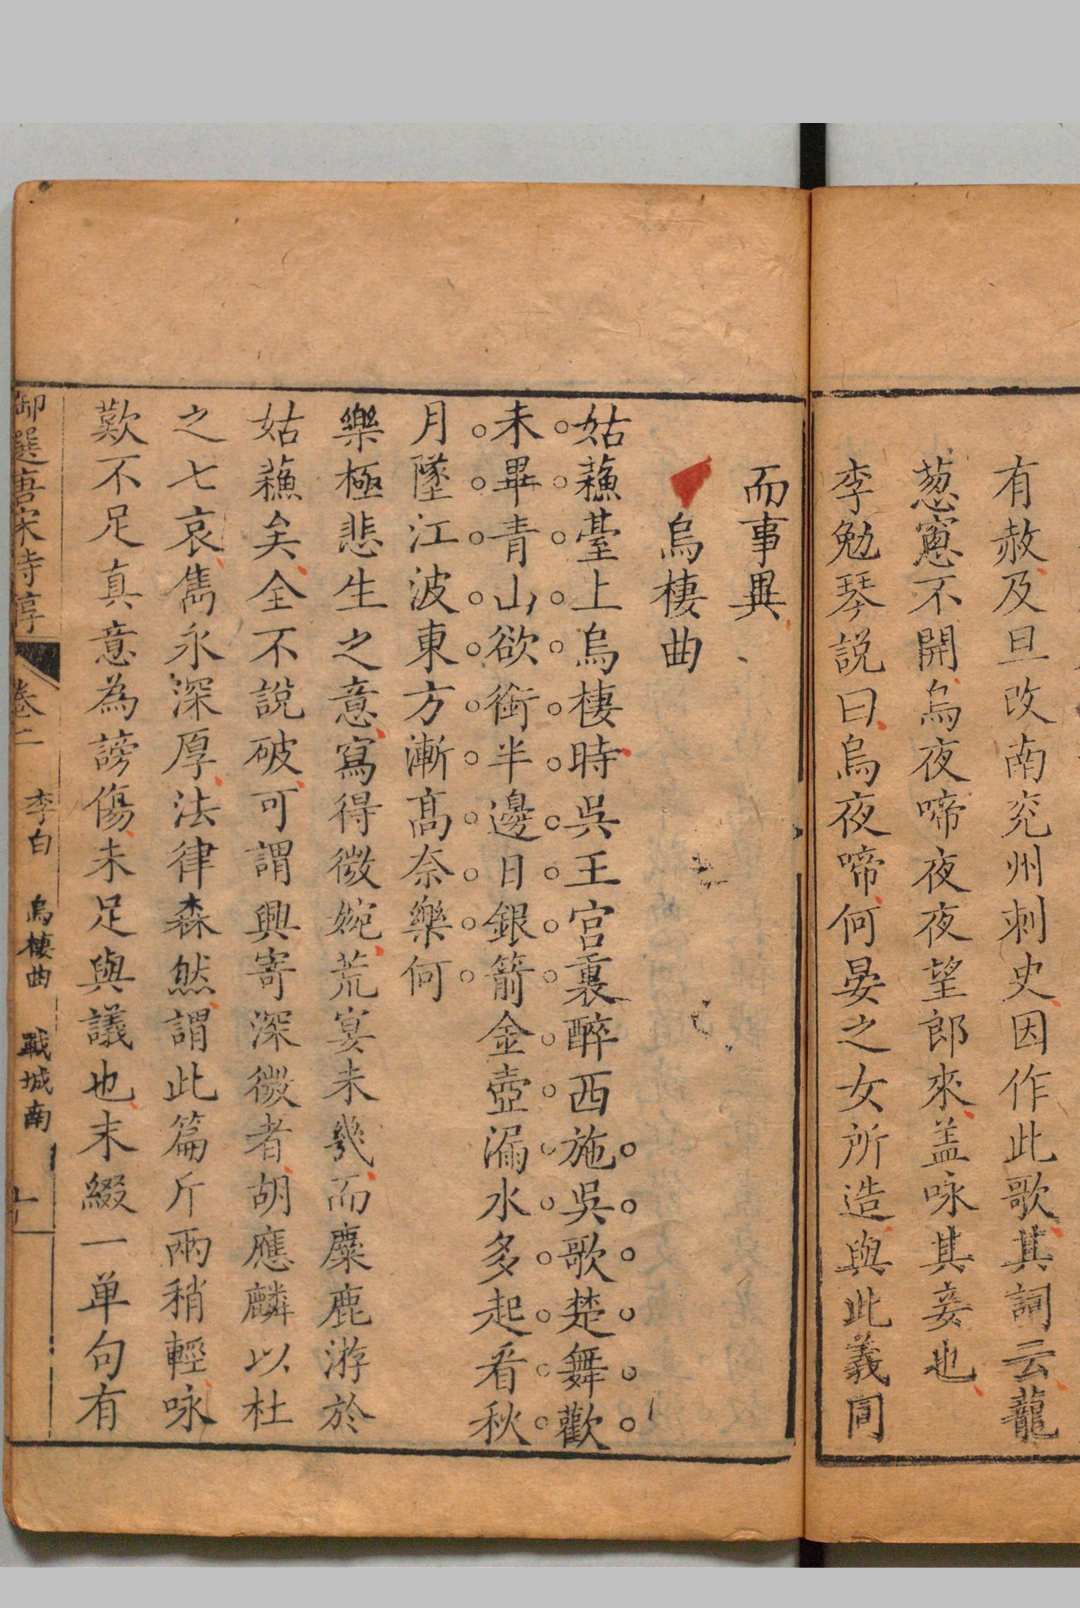 有赦及旦改南兖州刺史因作此歌其詞云龍
葱窻不開烏夜啼夜夜望郎來盖咏其妾也
李勉琴説曰烏夜啼何晏之女所造與此義同
而事異
烏棲曲
姑蘓臺上烏棲時吳王宮裏醉西施吳歌楚舞歡
未畢青山欲銜半邊日銀箭金壺漏水多起看秋
月墜江波東方漸髙奈樂何
樂極悲生之意寫得微婉荒宴未幾而麋鹿游於
姑蘓矣全不說破可謂興寄深微者胡應麟以杜
之七哀雋永深厚法律森然謂此篇斤兩稍輕咏
歎不足真意為謗傷未足與議也末綴一单句有
御選唐宋詩醇
卷二
李白
烏棲曲
戰城南